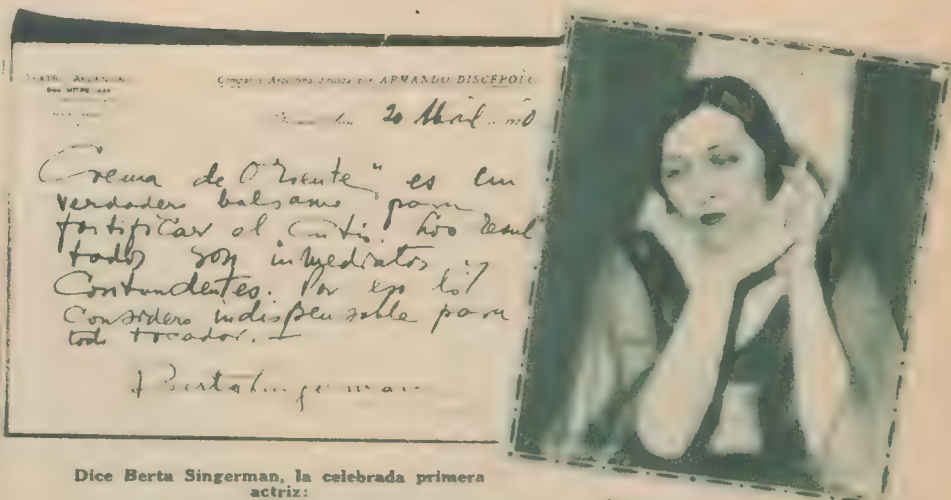 ARMANDO DISCEPOLO
20 Abril
Crema de Oriente" es un
verdadero balsamo para
fortificar el cutis. Los resul
tados son inmediatos y
Contundentes. Por eso lo
considero indispensable para
todo tocador. —
Berta Singerman
Dice Berta Singerman, la celebrada primera
actriz: